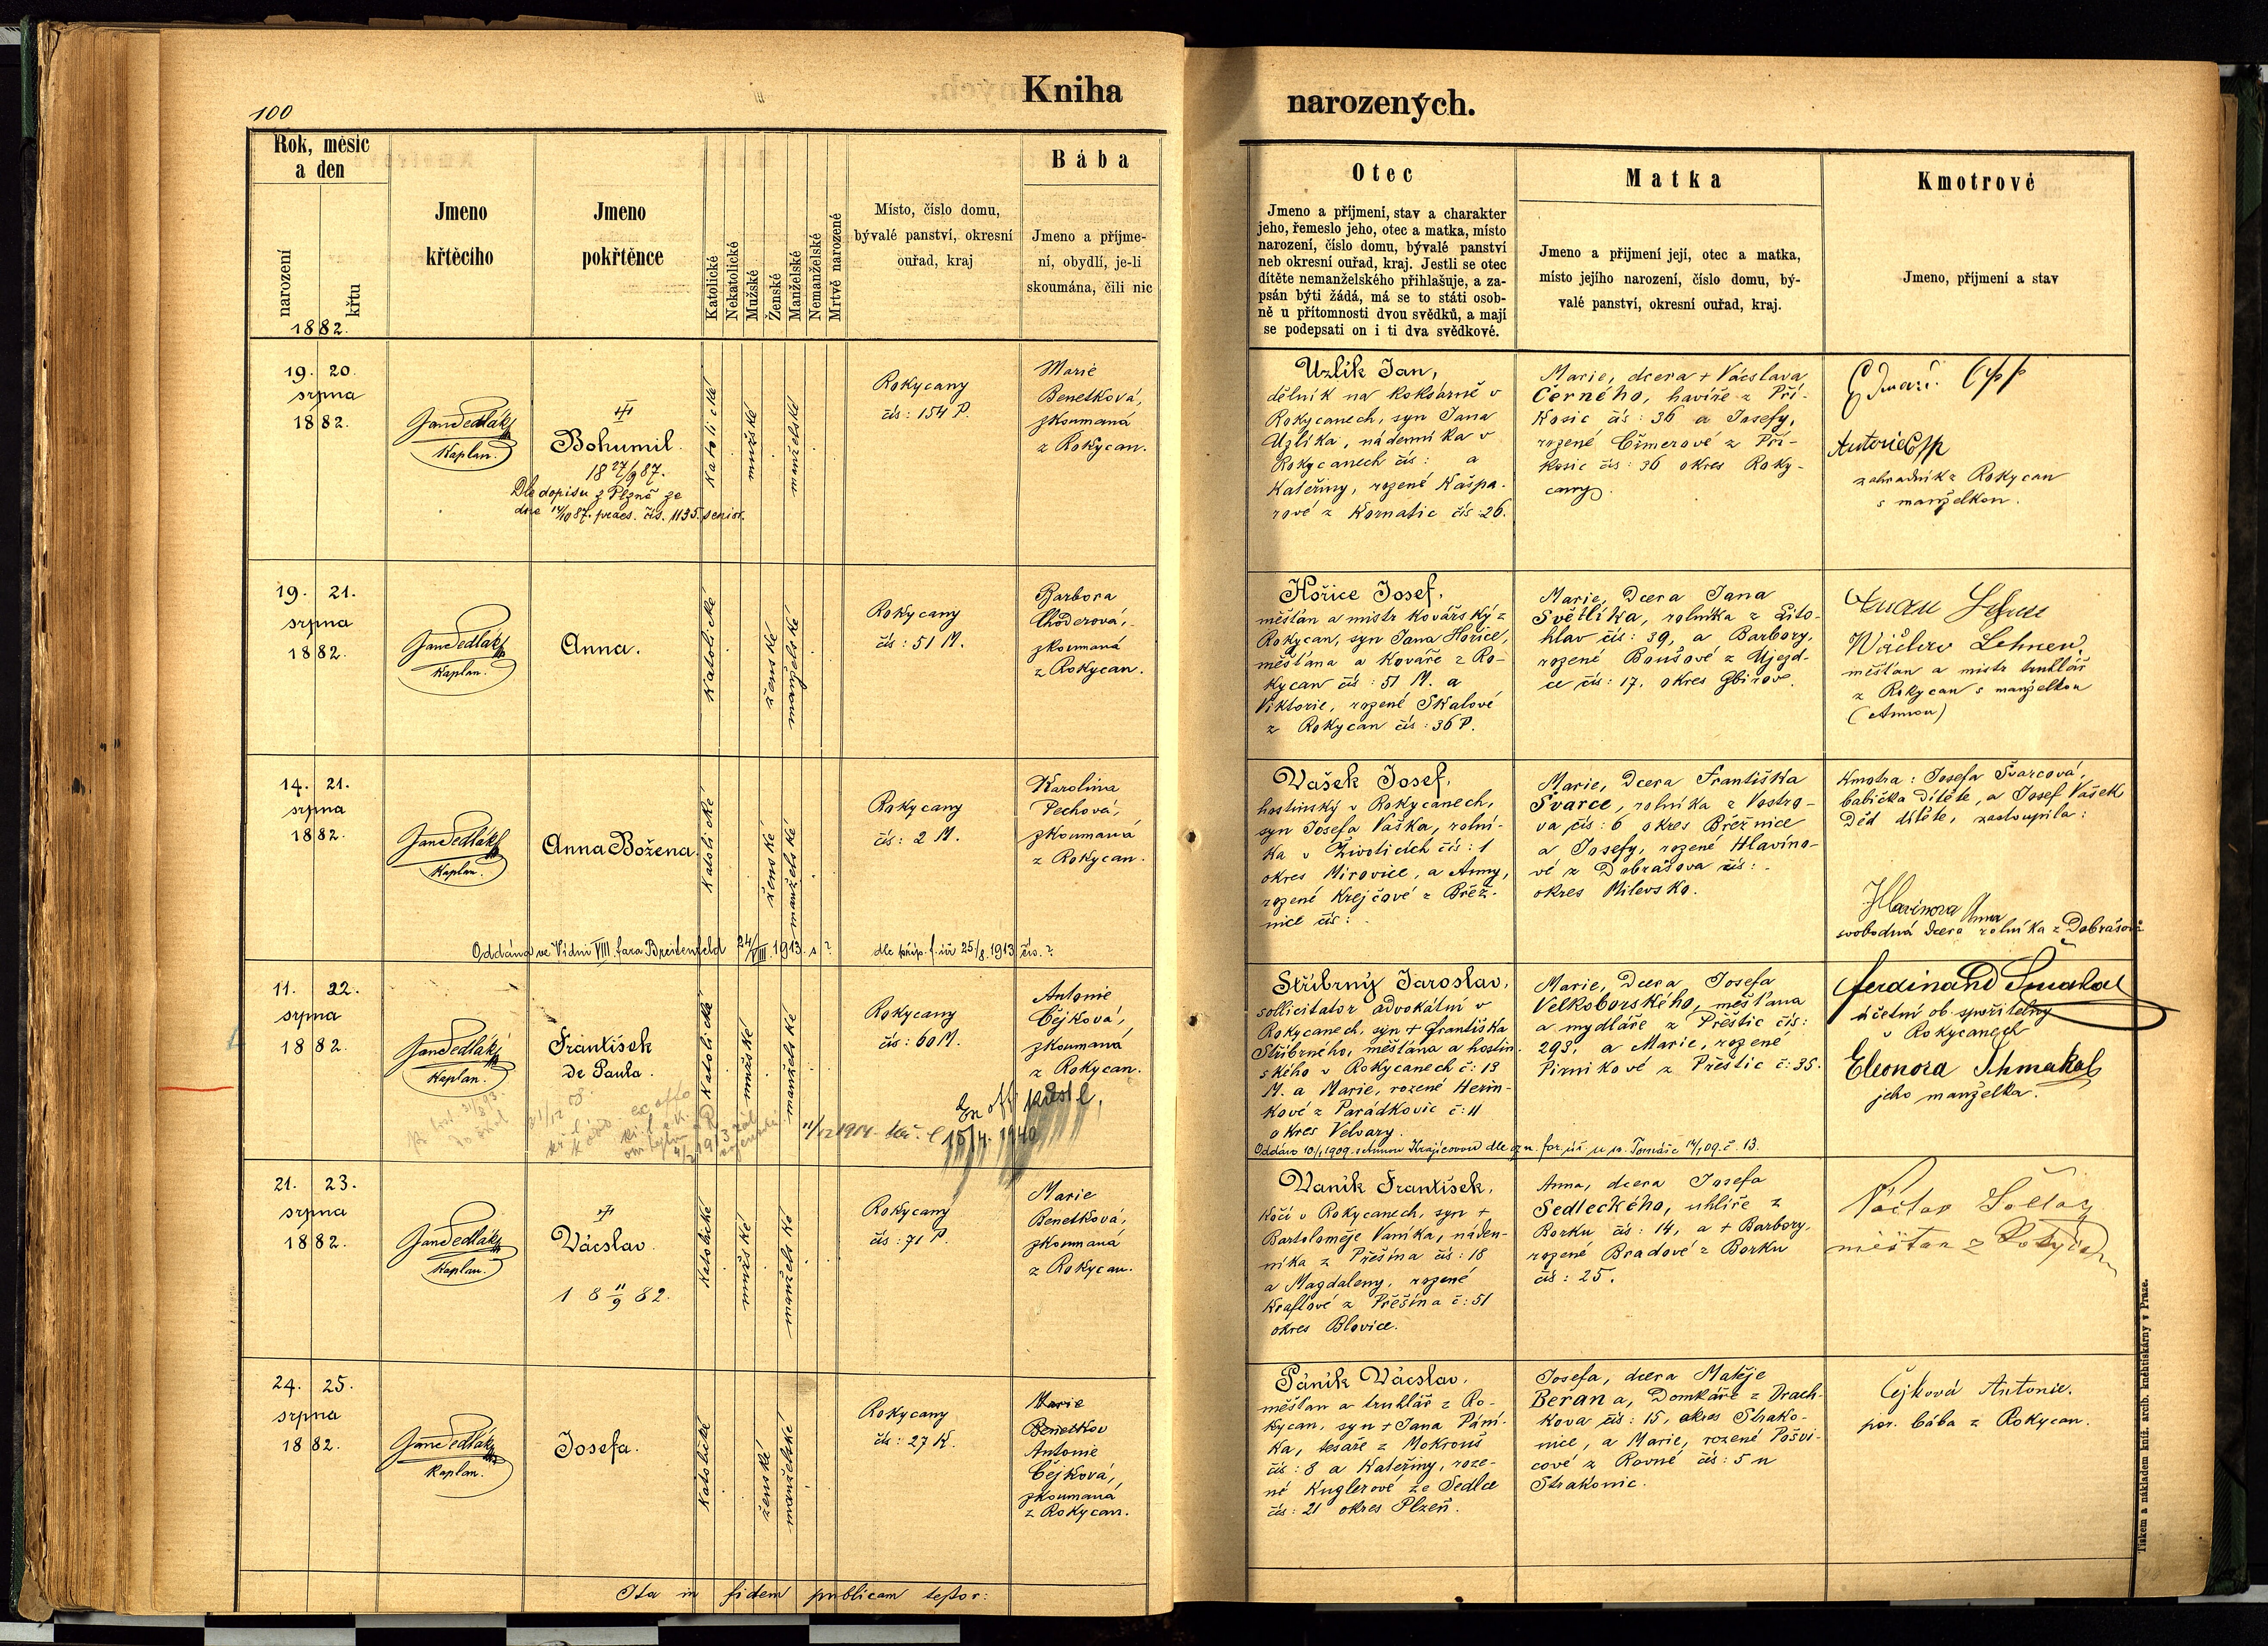 100
Kniha
narozených.
Rok, měsíc
a den
narození
křtu
1882.
Jmeno
křtěcího
Jmeno
pokřtěnce
Katolické
Nekatolické
Mužské
Ženské
Manželské
Nemanželské
Mrtvě narozené
Místo, číslo domu,
bývalé panství, okresní
ouřad, kraj
Bába
Jmeno a příjme-
ní, obydlí, je-li
skoumána, čili nic
Otec
Jmeno a příjmení, stav a charakter
jeho, řemeslo jeho, otec a matka, místo
narození, číslo domu, bývalé panství
neb okresní ouřad, kraj. Jestli se otec
dítěte nemanželského přihlašuje, a za-
psán býti žádá, má se to státi osob-
ně u přítomnosti dvou svědků, a mají
se podepsati on i ti dva svědkové.
Matka
Jmeno a přijmení její, otec a matka,
místo jejího narození, číslo domu, bý-
valé panství, okresní ouřad, kraj.
Kmotrové
Jmeno, příjmení a stav
19. 20.
srpna
1882.
Jan Sedlák
Kaplan.
Bohumil.
18 27/9 87.
Dle dopisu z Plzně ze
dne 14/10 87. praes. čís. 1135. senior.
Katolické
mužské
manželské
Rokycany
čís: 154 P.
Marie
Benetková,
zkoumaná
z Rokycan.
Uzlík Jan,
dělník na koksárně v
Rokycanech, syn Jana
Uzlíka, nádenníka v
Rokycanech čís: a
Kateřiny, rozené Kašpa-
rové z Kornatic čís: 26.
Marie, dcera + Václava
Černého, havíře z Pří-
kosic čís: 36 a Josefy,
rozené Cimerové z Pří-
kosic čís: 36 okres Roky-
cany.
Antonie
zahradník z Rokycan
s manželkou.
19. 21.
srpna
1882.
Jan Sedlák
Kaplan.
Anna.
Katolické
ženské
manželské
Rokycany
čís: 51 M.
Barbora
Choderová,
zkoumaná
z Rokycan.
Hořice Josef,
měšťan a mistr kovářský z
Rokycan, syn Jana Hořice,
měšťana a kováře z Ro-
kycan čís: 51 M. a
Viktorie, rozené Skalové
z Rokycan čís: 36 P.
Marie, dcera Jana
Světlíka, rolníka z Lito-
hlav čís: 39, a Barbory,
rozené Boušové z Újezd-
ce čís: 17, okres Zbirov.
Lehner
měšťan a mistr truhlář
z Rokycan s manželkou
(Annou)
14. 21.
srpna
1882.
Jan Sedlák
Kaplan.
Anna Božena.
Katolické
ženské
manželské
Rokycany
čís: 2 M.
Karolina
Pechová,
zkoumaná
z Rokycan.
Vašek Josef,
hostinský v Rokycanech,
syn Josefa Vaška, rolní-
ka v Životicích čís: 1
okres Mirovice, a Anny,
rozené Krejčové z Břez-
nice čís:
Marie, dcera Františka
Švarce, rolníka z Vostro-
va čís: 6 okres Březnice
a Josefy, rozené Hlavíno-
vé z Dobrášova čís:
okres Milevsko.
Kmotra: Josefa Švarcová,
babička dítěte, a Josef Vašek
děd dítěte, zastoupila:
Hlavínova Anna
svobodná dcera rolníka z Dobrášova
Oddána ve Vídni VIII. fara Breitenfeld 24/VIII. 1913. s ? dle příp. f. úř 25/8. 1913 čís. ?
11. 22.
srpna
1882.
Jan Sedlák
Kaplan.
František
de Paula.
Katolické
mužské
manželské
Rokycany
čís: 60 M.
Antonie
Čejková,
zkoumaná
z Rokycan.
15/4. 1940
Stříbrný Jaroslav,
sollicitator advokátní v
Rokycanech, syn + Františka
Stříbrného, měšťana a hostin-
ského v Rokycanech č: 13
M. a Marie, rozené Herin-
kové z Parádkovic č: 11
okres Velvary.
Marie, dcera Josefa
Velkoborského, měšťana
a mydláře z Přeštic čís:
293, a Marie, rozené
Pirnikové z Přeštic č: 35.
Ferdinand Šmakal
účetní ob. spořitelny
v Rokycanech
Eleonora Schmakal
jeho manželka.
21. 23.
srpna
1882.
Jan Sedlák
Kaplan.
Václav.
18 11/9 82.
Katolické
mužské
manželské
Rokycany
čís: 71 P.
Marie
Benetková,
zkoumaná
z Rokycan.
Vaník František,
kočí v Rokycanech, syn +
Bartoloměje Vaníka, náden-
níka z Přešína čís: 18
a Magdaleny, rozené
Kraftové z Přešína č: 51
okres Blovice.
Anna, dcera Josefa
Sedleckého, uhlíře z
Borku čís: 14, a + Barbory,
rozené Bradové z Borku
čís: 25.
Václav
měšťan z Rokycan
24. 25.
srpna
1882.
Jan Sedlák
Kaplan.
Josefa.
Katolické
ženské
manželské
Rokycany
čís: 27 K.
Marie
Benetkov
Antonie
Čejková,
zkoumaná
z Rokycan.
Páník Václav,
měšťan a truhlář z Ro-
kycan, syn + Jana Pání-
ka, tesaře z Mokrouš
čís: 8 a Kateřiny, roze-
né Kuglerové ze Sedlce
čís: 21 okres Plzeň.
Josefa, dcera Matěje
Berana, domkáře z Drach-
kova čís: 15, okres Strako-
nice, a Marie, rozené Pošvi-
cové z Rovné čís: 5 u
Strakonic.
Čejková Antonie.
por. bába z Rokycan.
Ita in fidem publicam testor:
Tiskem a nákladem kníž. arcib. knihtiskárny v Praze.